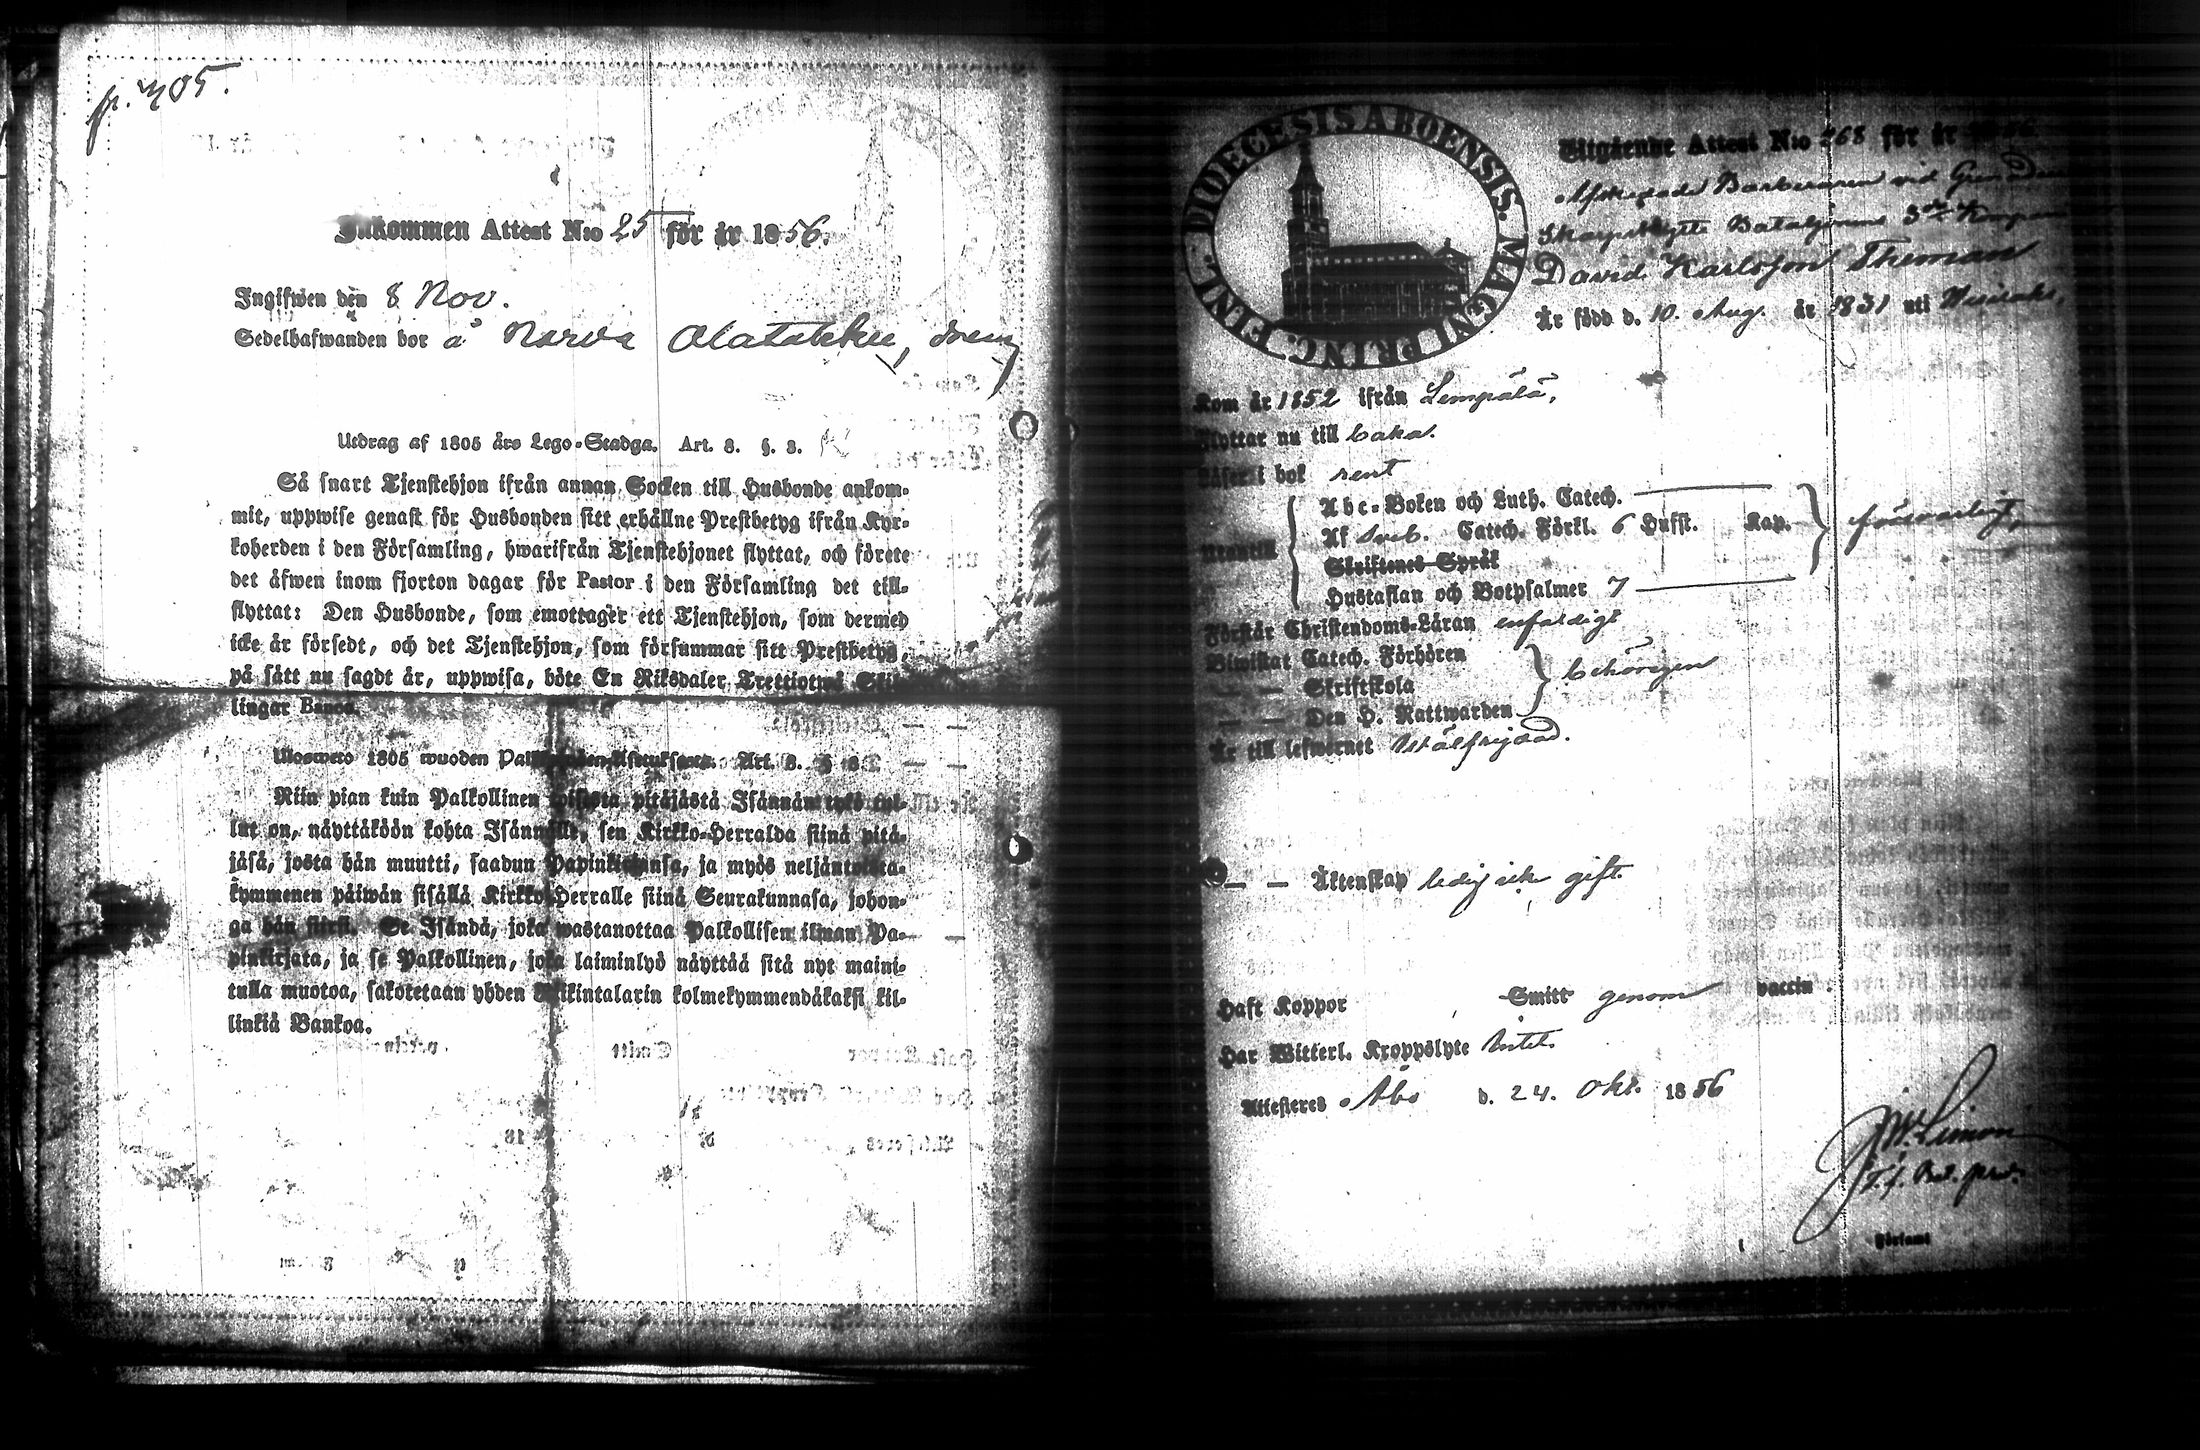 p. 405.
Inkommen Attest N:o 25 för år 1856.
Ingifwen den 8 Nov.
Sedelhafwanden bor å Narva Alatakku, dräng
Utdrag af 1805 års Lego-Stadga. Art. 8. §. 3.
Så snart Tjenstehjon ifrån annan Socken till Husbonde ankom-
mit, uppwise genast för Husbonden sitt erhållne Prestbetyg ifrån Kyr-
koherden i den Församling, hwarifrån Tjenstehjonet flyttat, och förete
det äfwen inom fjorton dagar för Pastor i den Församling det till-
flyttat: Den Husbonde, som emottager ett Tjenstehjon, som dermed
icke är försedt, och det Tjenstehjon, som försummar sitt Prestbetyg,
på sätt nu sagdt är, uppwisa, böte En Riksdaler Trettiotwå Skil-
lingar Banco.
Uloswero 1805 wuoden Art. 8. §
Niin pian kuin Palkollinen toisesta pitäjästä Isännän tykö tul-
lut on, näyttäköön kohta Isännälle, sen Kirkko-Herralda siinä pitä-
jäsä, josta hän muutti, saadun Papinkirjansa, ja myös neljäntoista-
kymmenen päiwän sisällä Kirkko-Herralle siinä Seurakunnasa, johon-
ga hän siirsi. Se Isändä, joka wastanottaa Palkollisen ilman Pa-
pinkirjata, ja se Palkollinen, joka laiminlyö näyttää sitä nyt maini-
tulla muotoa, sakotetaan yhden Riikintalarin kolmekymmendäkaksi kil-
linkiä Bankoa.
DIOECESIS ABOENSIS. MAGNI PRINC. FINL.
Utgående Attest N:o 268 för år 1856
Afskedade Barberaren vid
Skarpskytte Bataljons 3dje
David Karlsson Theman
Är född d. 10. Aug. år 1831 uti
Kom år 1852 ifrån Lempälä,
Flyttar nu till
Läser i bok rent
Utantill
Abc-Boken och Luth. Catech.
Af Sveb. Catech. Förkl. 6 Hufst. Kap.
Skriftenes Språk
Hustaflan och Botpsalmer 7
försvarligt,
Förstår Christendoms-Läran enfaldigt
Biwistat Catech. Förhören
— — Skriftskola
— — Den H. Nattwarden
behörigen
Är till lefwernet välfrejdad.
— — Äktenskap ledig icke gift.
Haft Koppor Smitt genom vaccin
Har Witterl. Kroppslyte Intet.
Attesteres Åbo d. 24. Okt. 1856
Församl